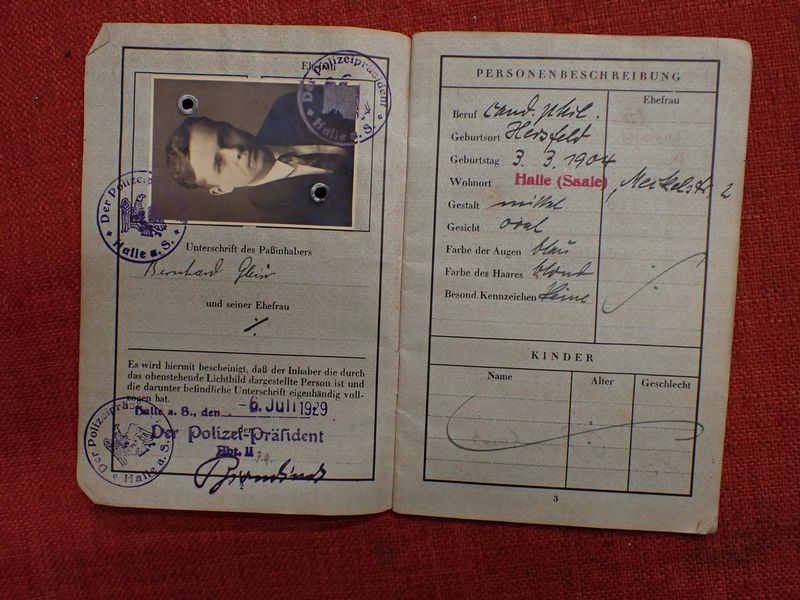 Ehefrau
Der Polizeipräsident
* Halle a. S. *
Der Polizei
* Halle a. S. *
Unterschrift des Paßinhabers
Bernhard
und seiner Ehefrau
Es wird hiermit bescheinigt, daß der Inhaber die durch
das obenstehende Lichtbild dargestellte Person ist und
die darunter befindliche Unterschrift eigenhändig voll-
zogen hat.
Halle a. S., den -6. Juli 1929
den
Der Polizei-Präsident
Abt. II
Der Polizeipräs
* Halle a. S.
2
PERSONENBESCHREIBUNG
Ehefrau
Beruf cand. phil.
Geburtsort Hersfeld
Geburtstag 3. 3. 1904
Wohnort Halle (Saale), Merkelstr. 2
Gestalt mittel
Gesicht oval
Farbe der Augen blau
Farbe des Haares blond
Besond. Kennzeichen keine
KINDER
Name Alter Geschlecht
3